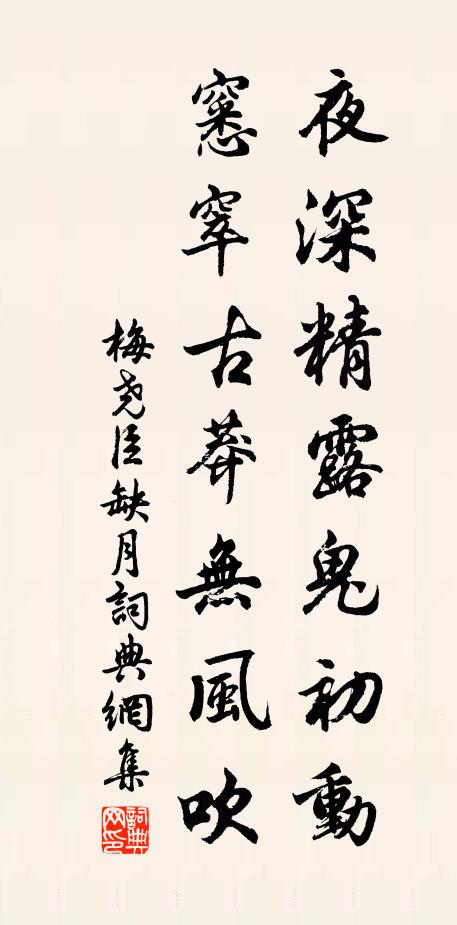 夜深精露鬼初動
窸窣古莽無風吹
梅尧臣缺月詞典網集
詞典網印